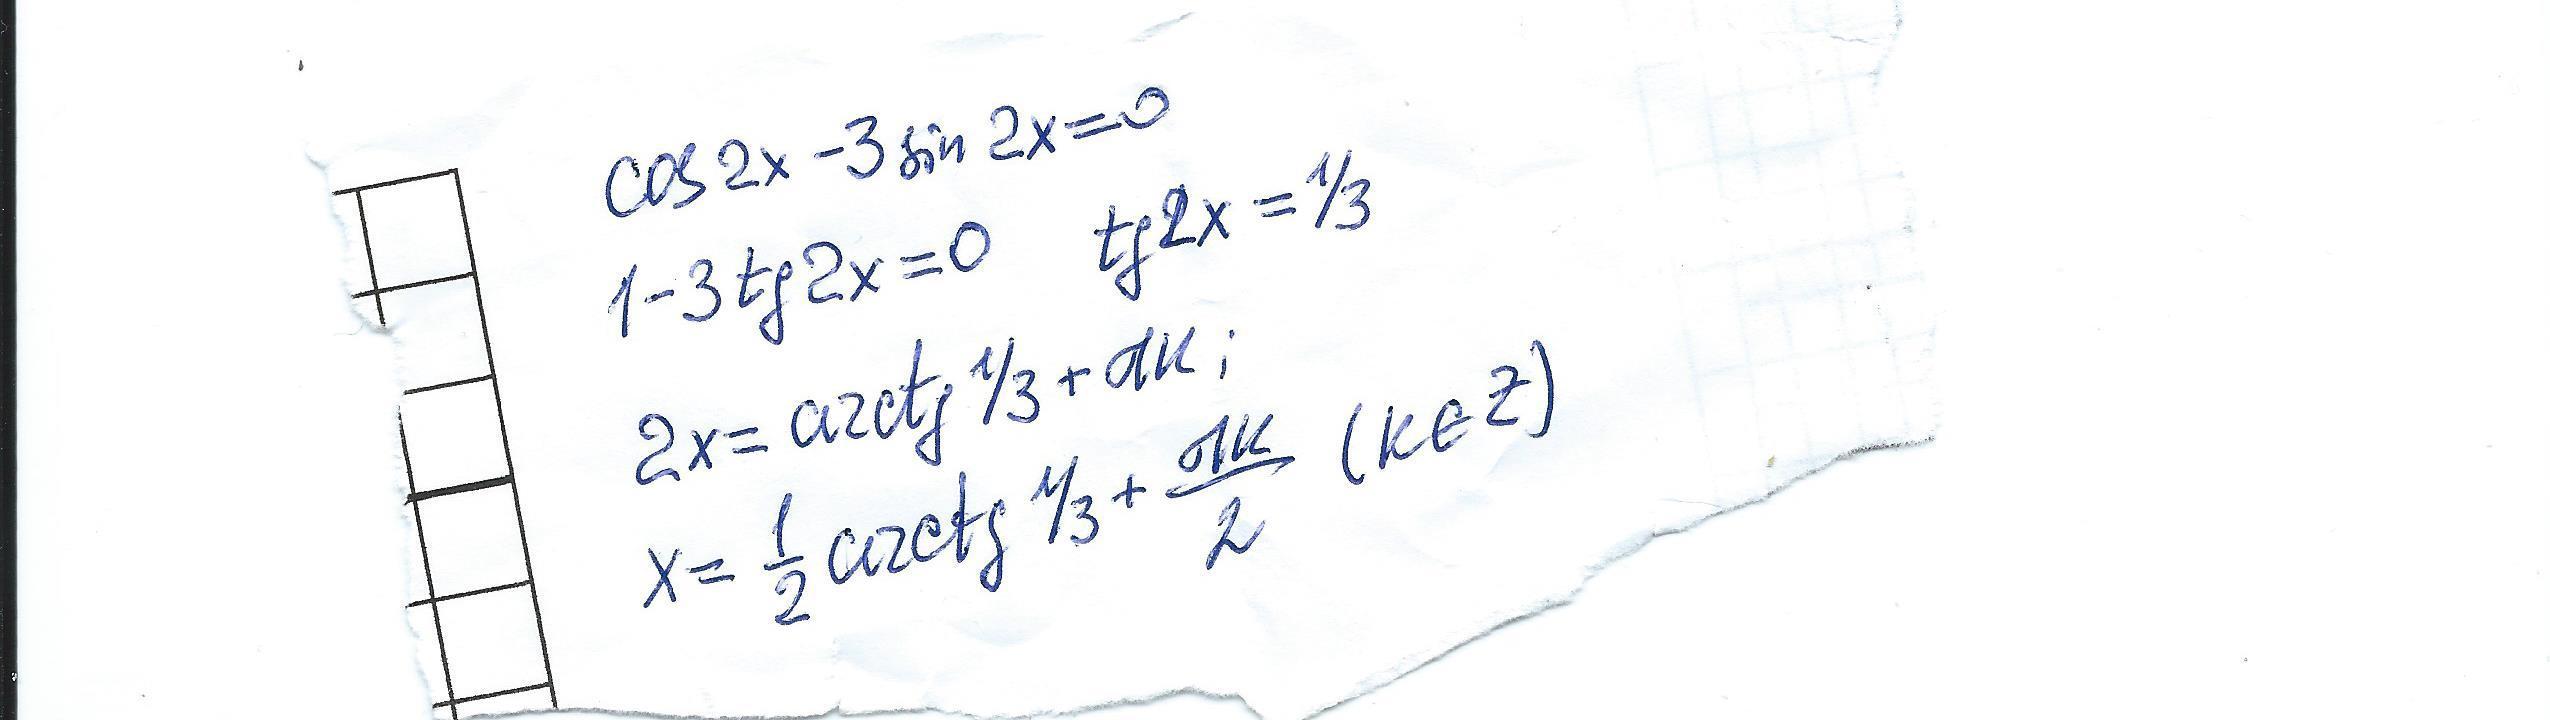 cos 2x - 3 sin 2x = 0
1 - 3 tg 2x = 0 tg 2x = 1/3
2x = arctg 1/3 + πk;
x = 1/2 arctg 1/3 + πk/2 (k ∈ Z)